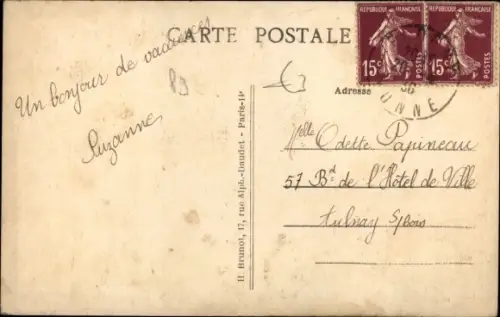 CARTE POSTALE
RÉPUBLIQUE FRANÇAISE
15c POSTES
RÉPUBLIQUE FRANÇAISE
15c POSTES
ONNE
Un bonjour de vacances
Suzanne
Adresse
Melle Odette Papineau
57 Bd de l'Hôtel de Ville
Aulnay s/bois
H. Brunot, 17, rue Alph.-Daudet - Paris-14e